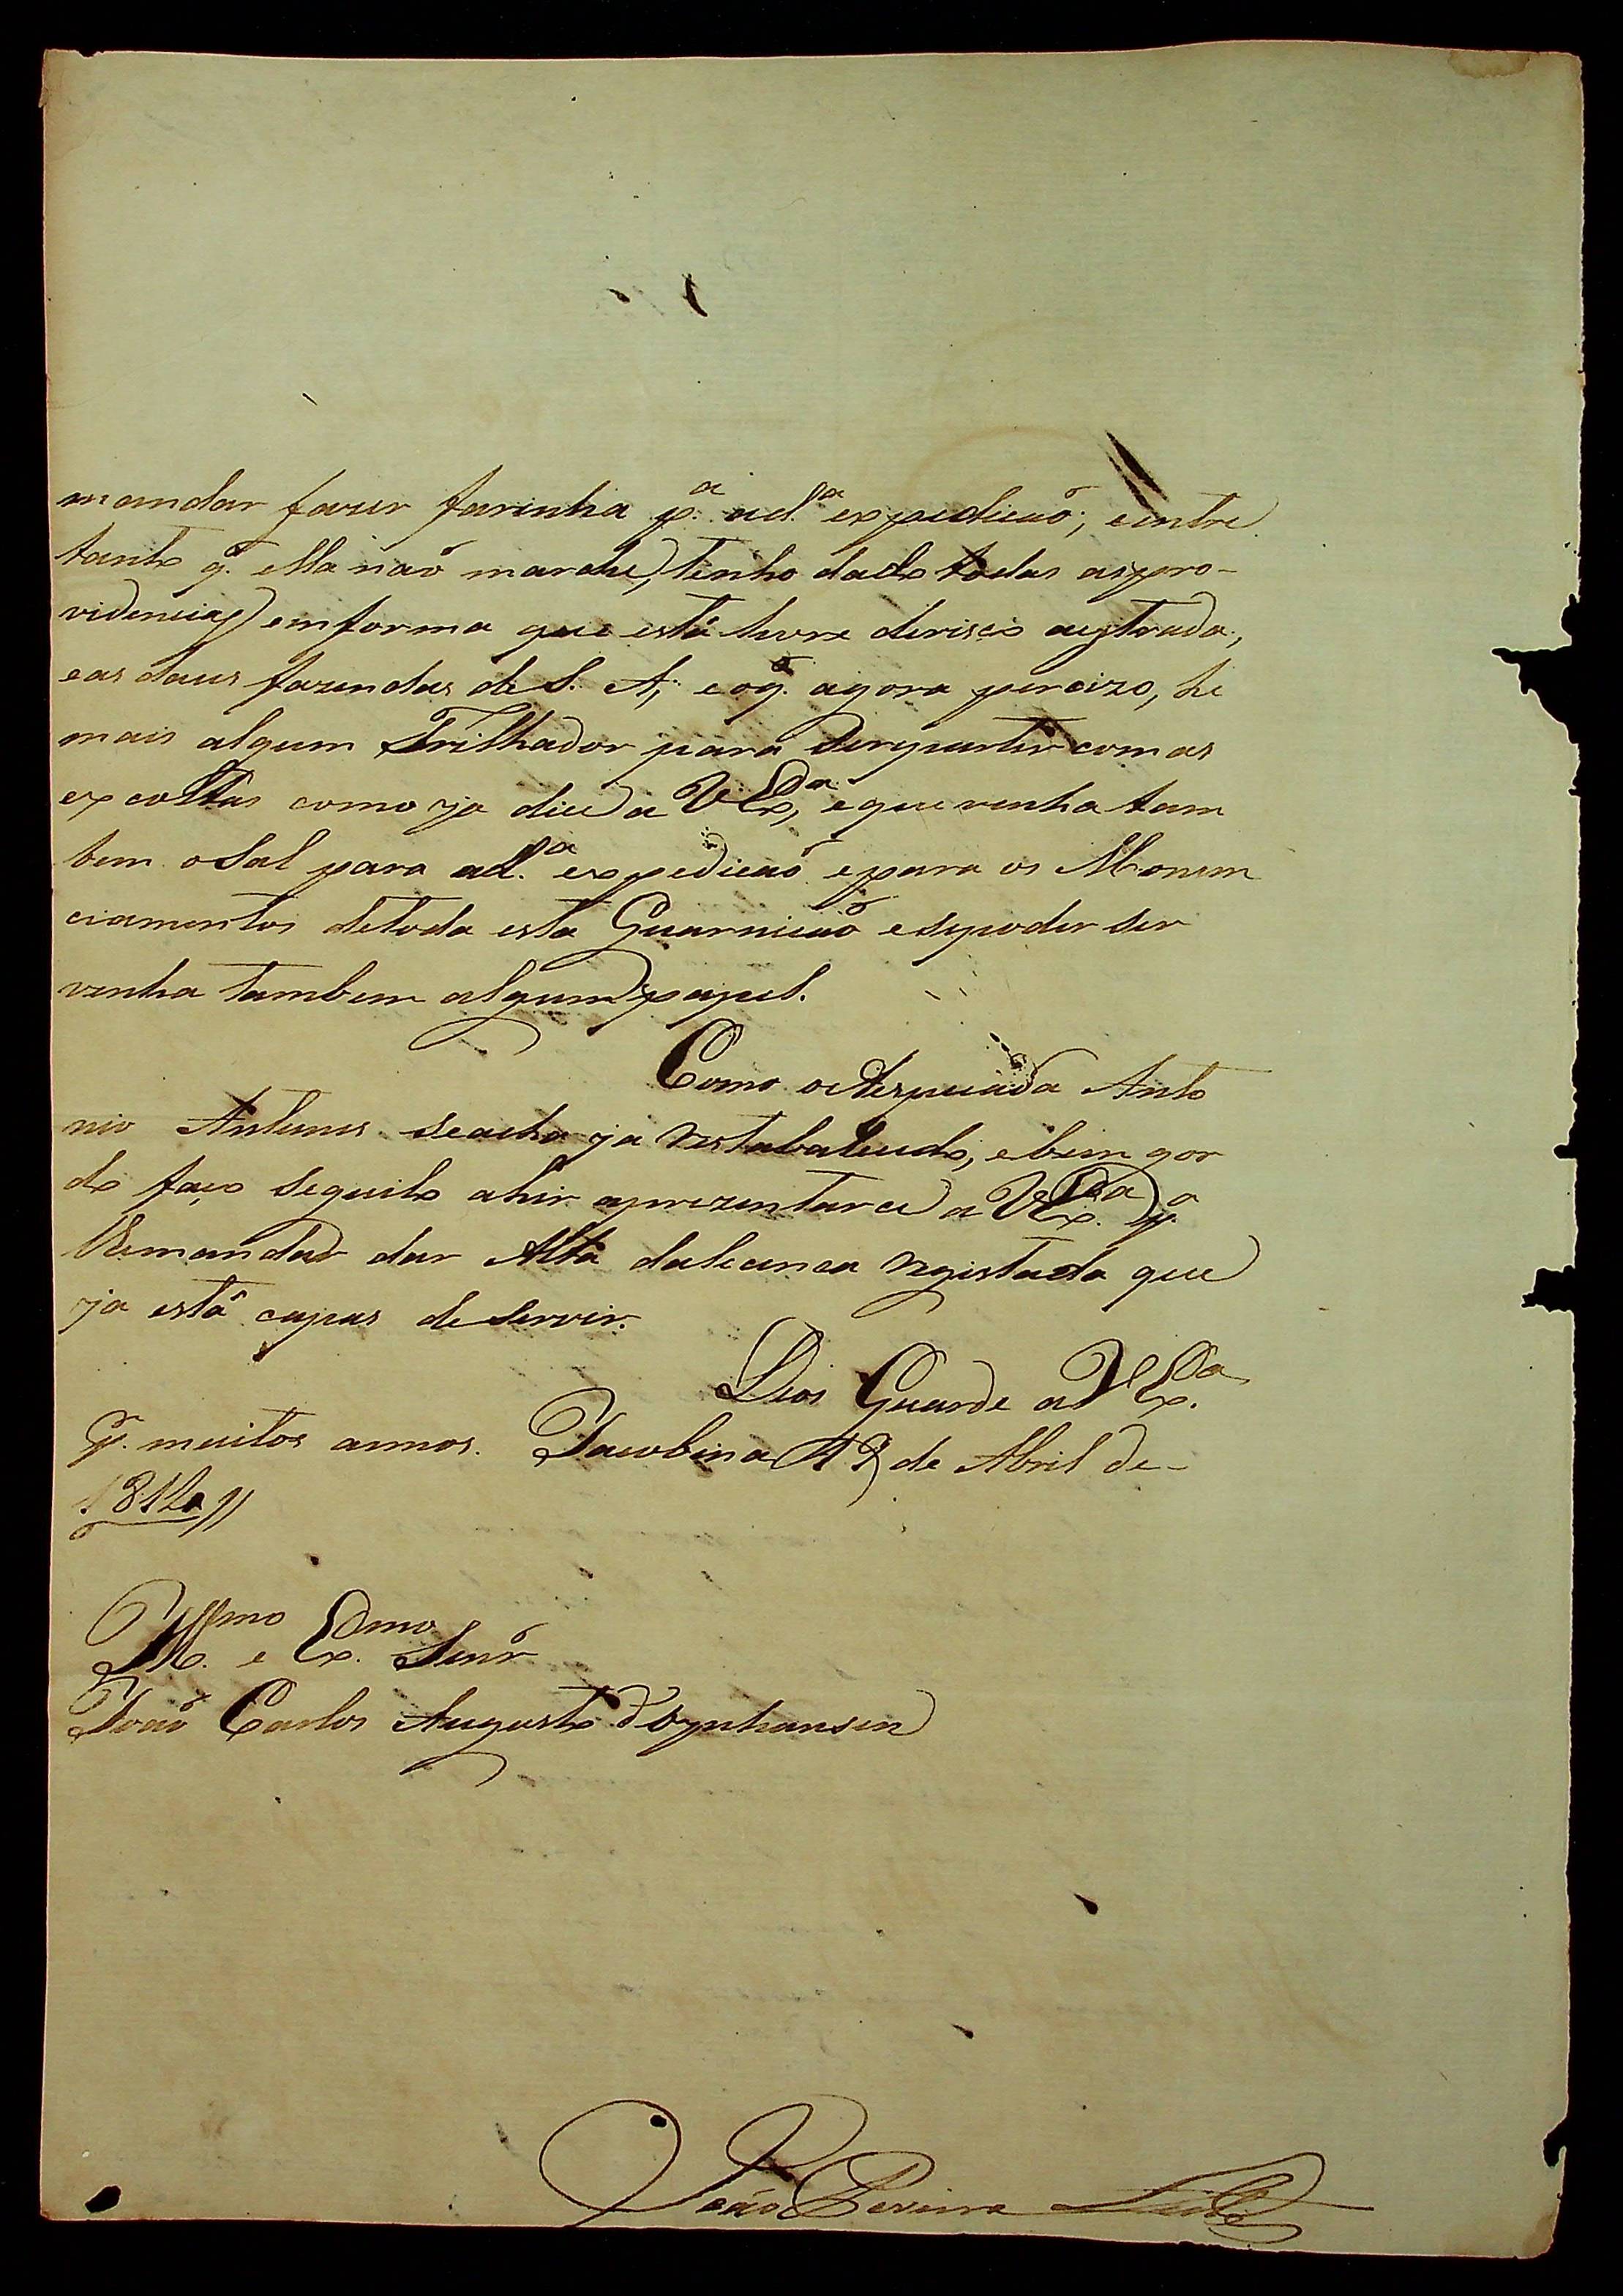 mandar fazer farinha p.ª ad.ª expedicaõ; eentre
tanto q.' ella naõ marche, tenho dado todas aspro-
videncias emforma que está livre derisco aestrada,
eas duas fazendas de S. A; eoq.' agora percizo, he
mais algum Trilhador para Serepartir comas
excoltas como ja dice a VEx.ª, eque venha tam
bem oSal para ad.ª expedicaõ epara os Monem
ciamentos detoda esta Guarnicaõ esepoder ser
venha tambem algum papel.
Como o Anto
nio Antunes seacha ja restabalecido, ebem gor
do faço Seguilo ahir aprezentarce a VEx.ª p.ª
lhemandar dar Alta registada que
ja está capas deServir.
Deos Guarde aVEx.ª
p.r muitos annos. Jacobina 17 de Abril de-
1812 //
Ill.mo e Ex.mo Senr
Joaõ Carlos Augusto d'Oynhausen
João Pereira Leite